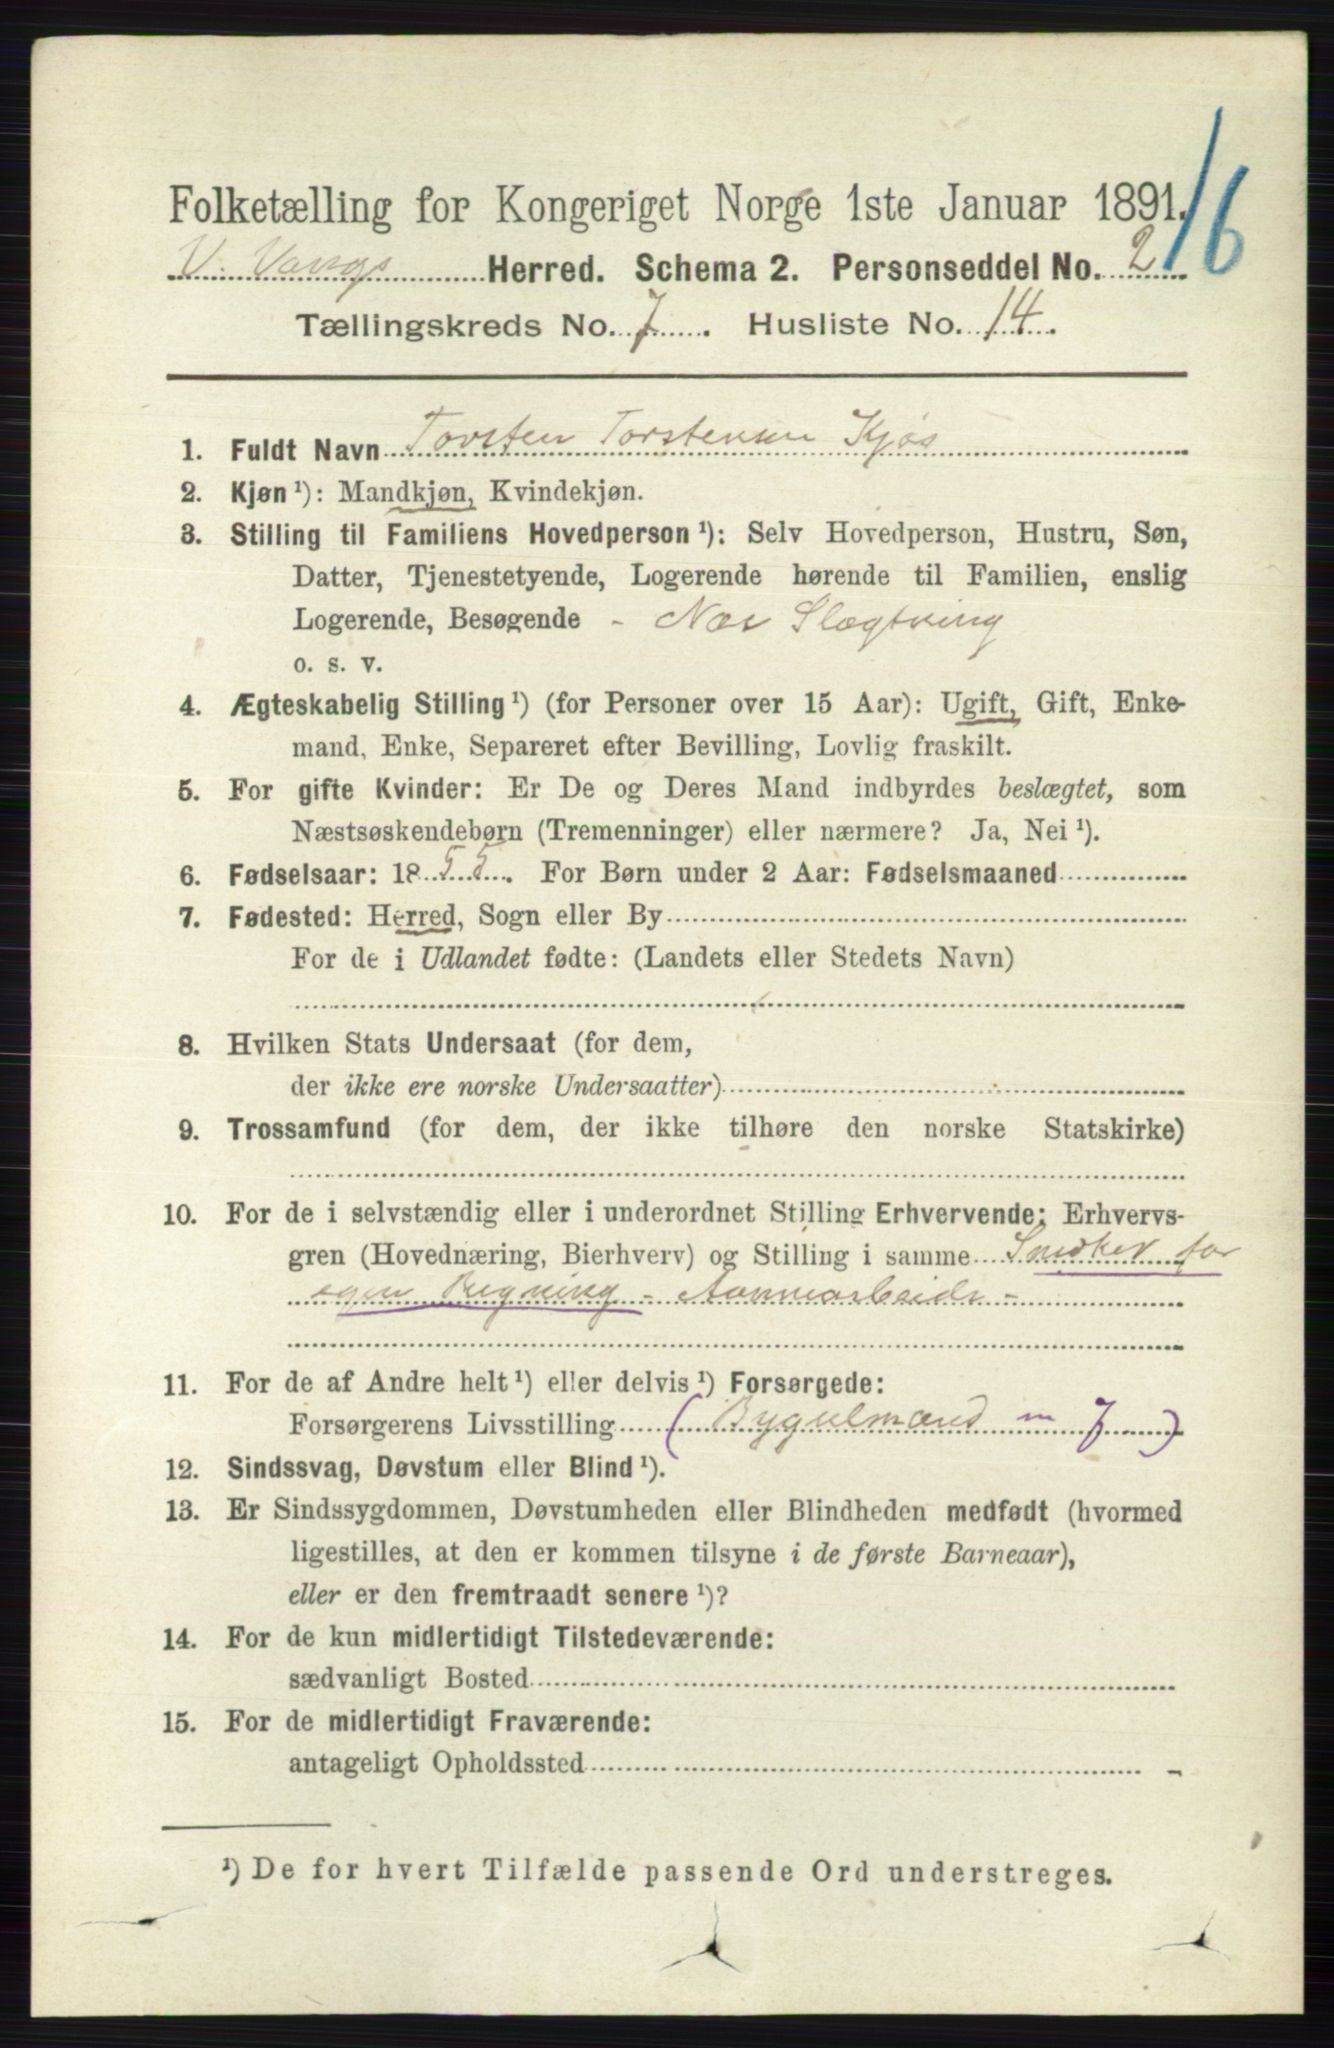 16
Folketælling for Kongeriget Norge 1ste Januar 1891.
V. Vangs Herred. Schema 2. Personseddel No. 2
Tællingskreds No. 7. Husliste No. 14.
1. Fuldt Navn Torsten Torstensen Kjøs
2. Kjøn ¹): Mandkjøn, Kvindekjøn.
3. Stilling til Familiens Hovedperson ¹): Selv Hovedperson, Hustru, Søn,
Datter, Tjenestetyende, Logerende hørende til Familien, enslig
Logerende, Besøgende - Nær Slægtning
o. s. v.
4. Ægteskabelig Stilling ¹) (for Personer over 15 Aar): Ugift, Gift, Enke-
mand, Enke, Separeret efter Bevilling, Lovlig fraskilt.
5. For gifte Kvinder: Er De og Deres Mand indbyrdes beslægtet, som
Næstsøskendebørn (Tremenninger) eller nærmere? Ja, Nei ¹).
6. Fødselsaar: 1855. For Børn under 2 Aar: Fødselsmaaned
7. Fødested: Herred, Sogn eller By
For de i Udlandet fødte: (Landets eller Stedets Navn)
8. Hvilken Stats Undersaat (for dem,
der ikke ere norske Undersaatter)
9. Trossamfund (for dem, der ikke tilhøre den norske Statskirke)
10. For de i selvstændig eller i underordnet Stilling Erhvervende: Erhvervs-
gren (Hovednæring, Bierhverv) og Stilling i samme Snedker for
egen Regning - -
11. For de af Andre helt ¹) eller delvis ¹) Forsørgede:
Forsørgerens Livsstilling ( Bygselmand m J )
12. Sindssvag, Døvstum eller Blind ¹).
13. Er Sindssygdommen, Døvstumheden eller Blindheden medfødt (hvormed
ligestilles, at den er kommen tilsyne i de første Barneaar),
eller er den fremtraadt senere ¹)?
14. For de kun midlertidigt Tilstedeværende:
sædvanligt Bosted
15. For de midlertidigt Fraværende:
antageligt Opholdssted
¹) De for hvert Tilfælde passende Ord understreges.